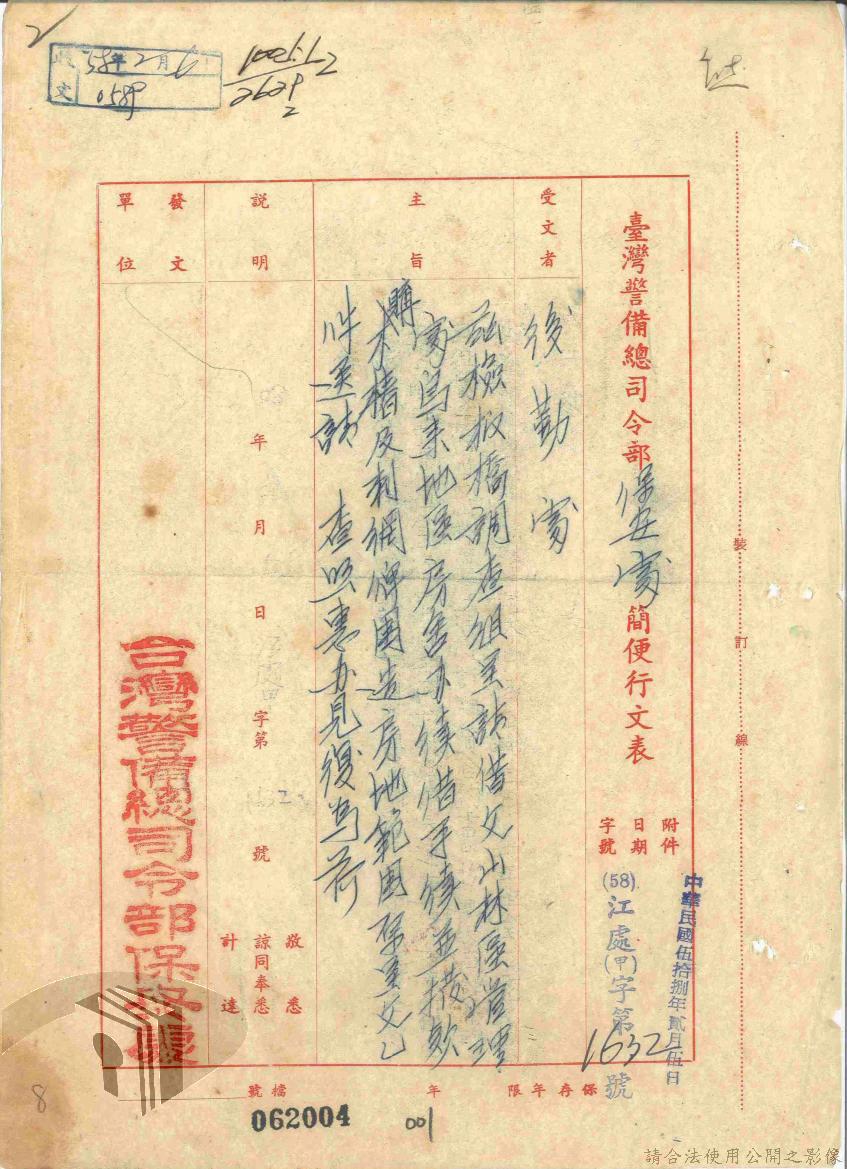 2
收文 58年2月6
0589
100元1.2
26292
臺灣警備總司令部保安處簡便行文表
附件
日期 中華民國伍拾捌年貳月伍日
字號 (58)江處(甲)字第1632號
受文者
後勤處
主旨
茲檢板橋調查組呈請借文山林區管理
處烏來地區房舍办續借手續並撥款
購木樁及刺網俾圍造房地範圍原呈文乙
件送請 查照惠办見復為荷
說明
年 月 日 字第 號
敬悉
諒同奉悉
計達
發文
單位
台灣警備總司令部保安處
裝 訂 線
保存年限 年 檔號
062004
001
8
請合法使用公開之影像